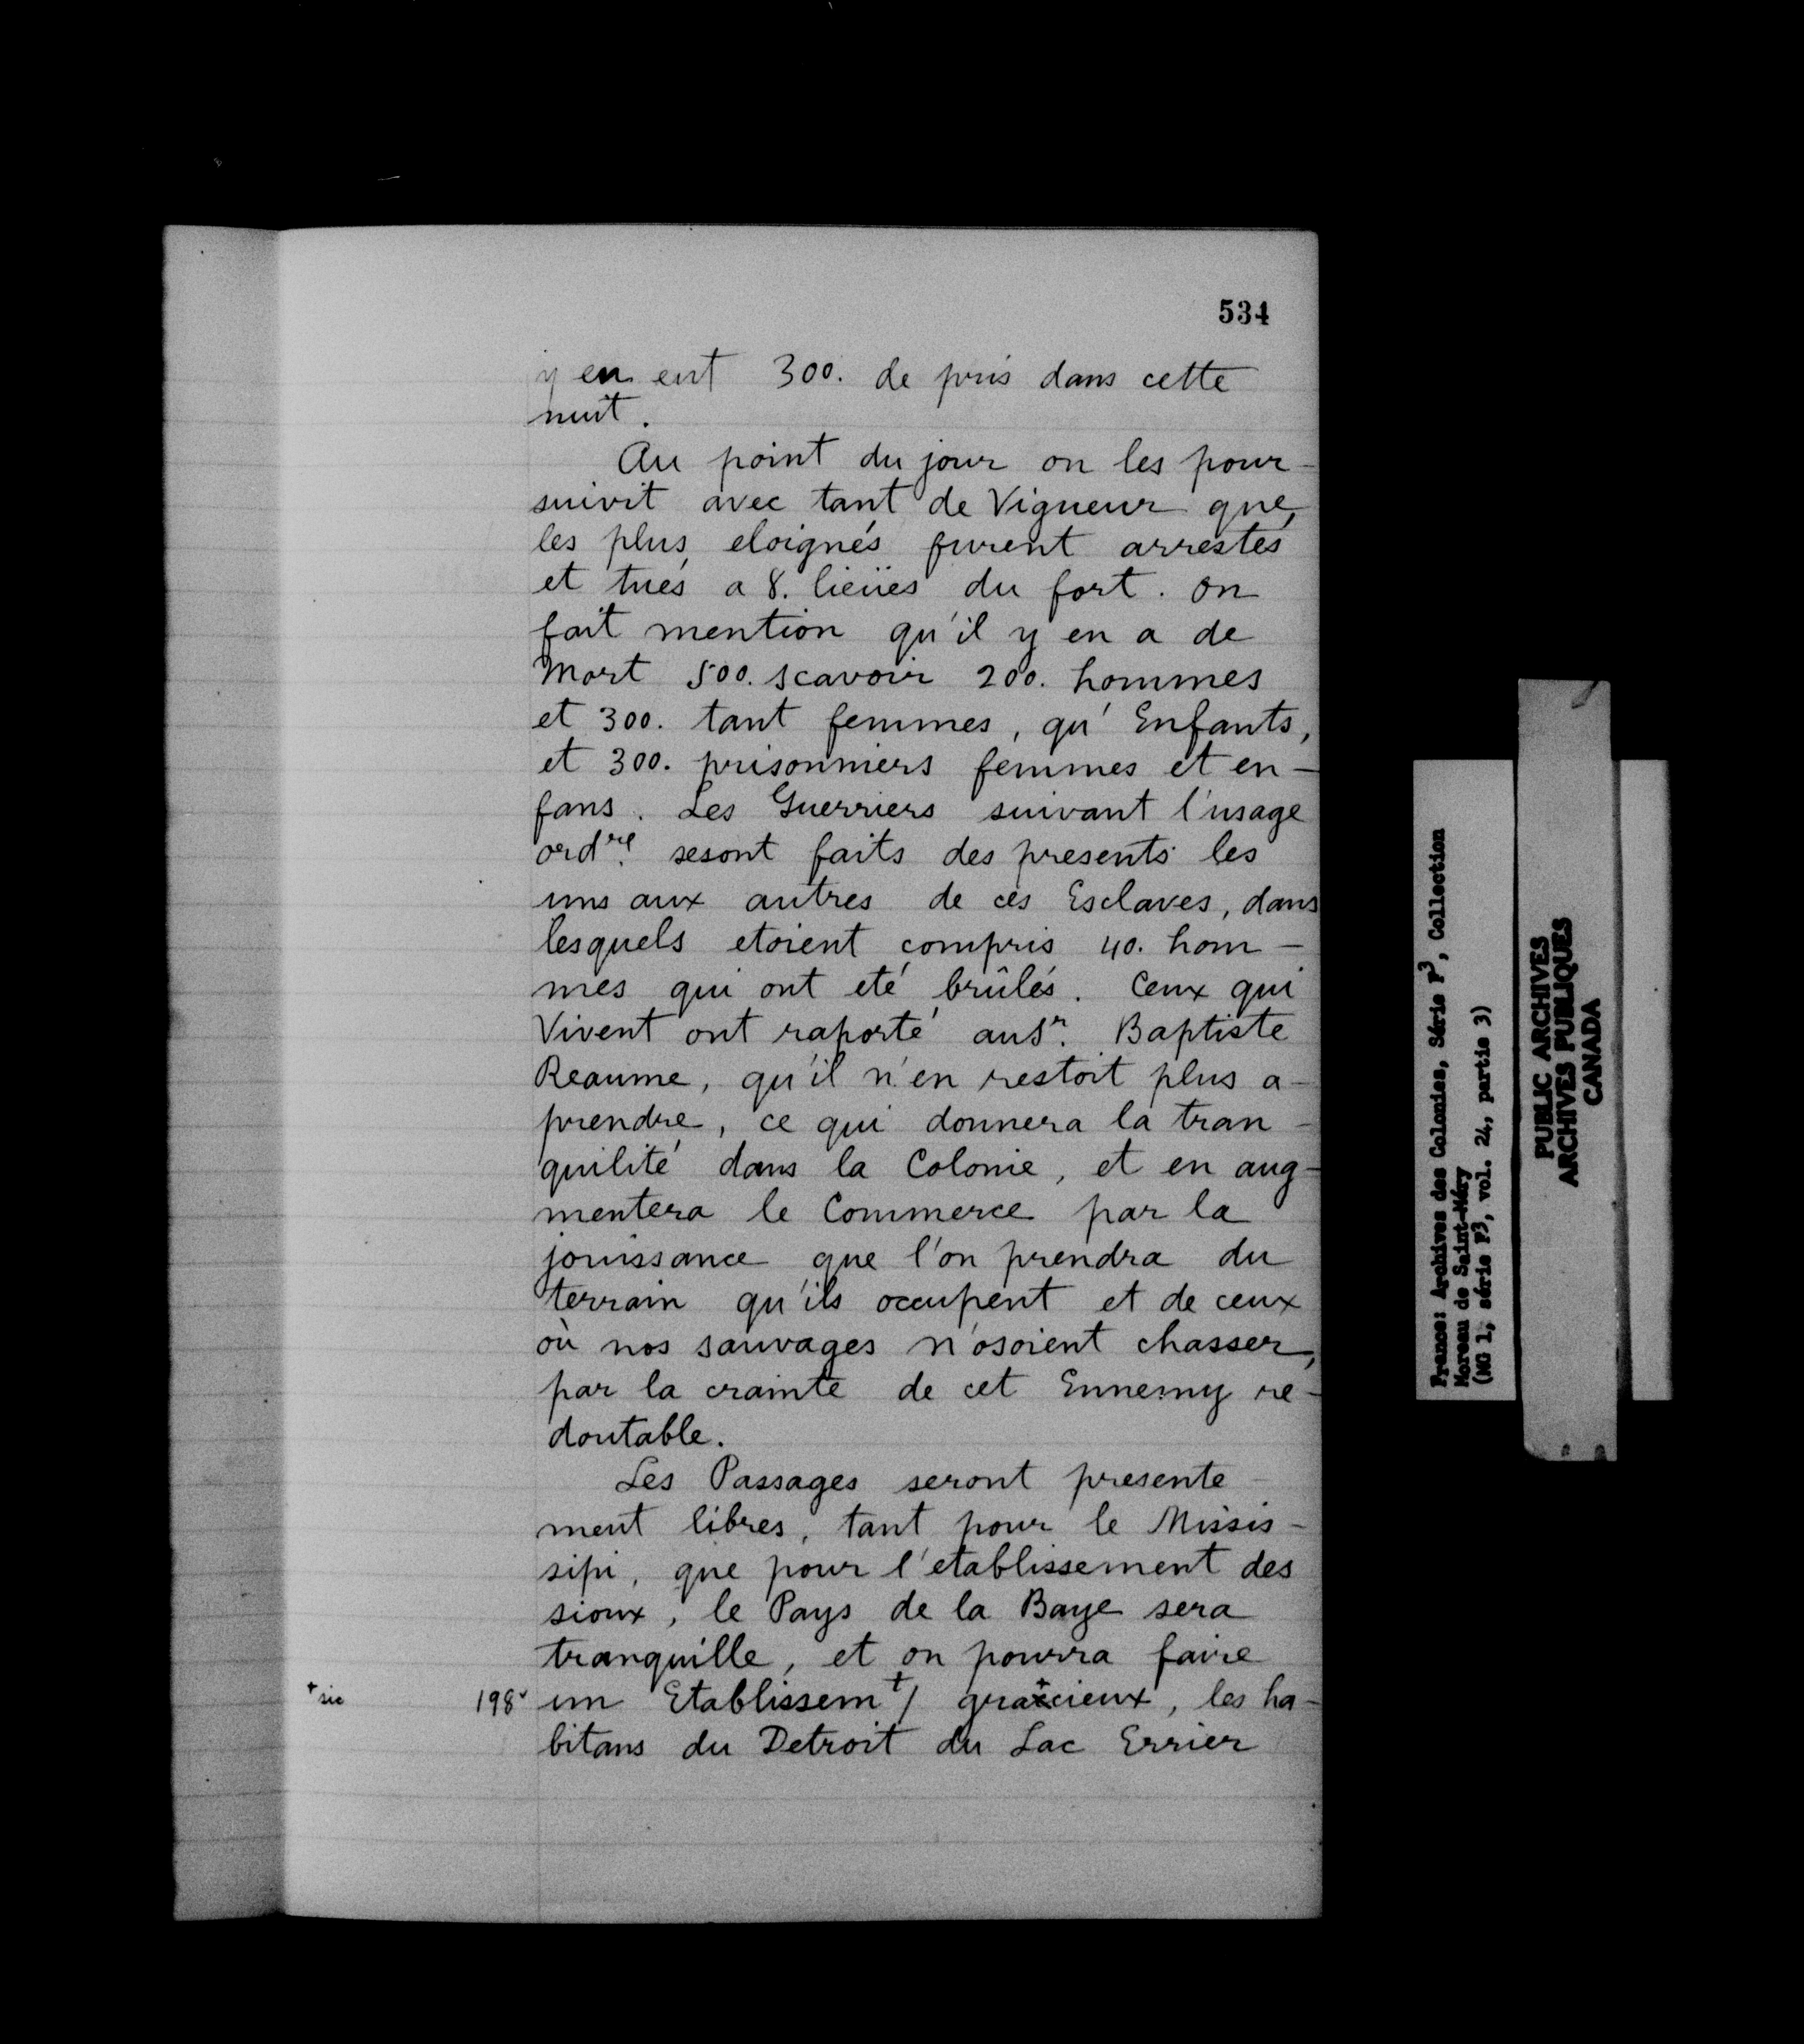 534
y en eut 300. de pris dans cette
nuit.
Au point du jour on les pour-
suivit avec tant de Vigueur que
les plus eloignés furent arrestés
et tués a 8. lieües du fort. on
fait mention qu'il y en a de
Mort 500. scavoir 200. hommes
et 300. tant femmes, qu' Enfants,
et 300. prisonniers femmes et en-
fans. Les Guerriers suivant l'usage
ordre. sesont faits des presents les
uns aux autres de ces Esclaves, dans
lesquels etoient compris 40. hom-
mes qui ont eté brûlés. Ceux qui
Vivent ont raporté au Sr. Baptiste
Reaume, qu'il n'en restoit plus a-
prendre, ce qui donnera la tran-
quilité dans la Colonie, et en aug-
mentera le Commerce par la
jouissance que l'on prendra du
terrain qu'ils occupent et de ceux
où nos sauvages n'osoient chasser,
par la crainte de cet Ennemy re-
doutable.
Les Passages seront presente-
ment libres, tant pour le Missis-
sipi, que pour l'etablissement des
sioux, le Pays de la Baye sera
tranquille, et on pourra faire
+ sic 198v un Etablissemt/ gracieux, les ha-
bitans du Detroit du Lac Errier
France: Archives des Colonies, Série F3, Collection
Moreau de Saint-Méry
(MG 1, série F3, vol. 24, partie 3)
PUBLIC ARCHIVES
ARCHIVES PUBLIQUES
CANADA